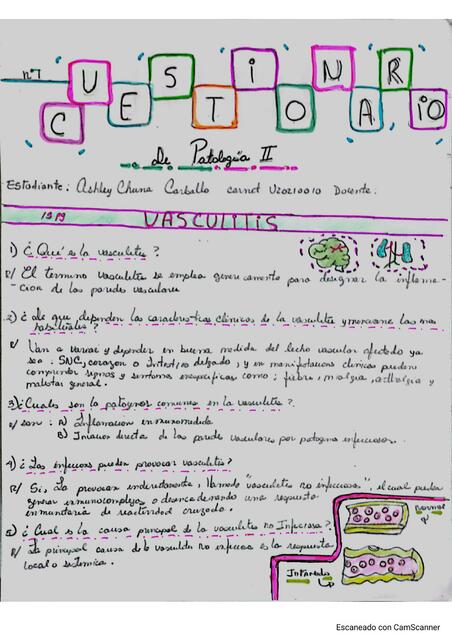 nº1
CUESTIONARIO
de Patología II
Estudiante: Ashley Chuna Carballo carnet U20210010 Docente:
VASCULITIS
1) ¿Qué es la vasculitis?
R/ El termino vasculitis se emplea genericamente para designar la inflama-
-cion de las paredes vasculares
2) ¿de que dependen las caracteristicas clinicas de la vasculitis y mencione las mas
habituales?
R/ Van a variar y depender en buena medida del lecho vascular afectado ya
sea: SNC, corazon o Intestino delgado; y en manifestaciones clinicas pueden
comprender signos y sintomas inespecificas como: fiebre, mialgia, artralgia y
malestar general.
3) ¿Cuales son la patogenos comunes en la vasculitis?
R/ son: A) Inflamacion inmunomediada
B) Invasion directa de las paredes vasculares por patogenos infecciosos.
4) ¿Las infecciones pueden provocar vasculitis?
R/ Si, La provocan indirectamente, llamado "vasculitis no infecciosa", el cual puede
generar inmunocomplejos o desencadenando una respuesta
inmunitaria de reactividad cruzada.
5) ¿Cual es la causa principal de la vasculitis no Infecciosa?
R/ La principal causa de la vasculitis no infecciosa es la respuesta
local o sistemica.
Normal
Inflamado
Escaneado con CamScanner